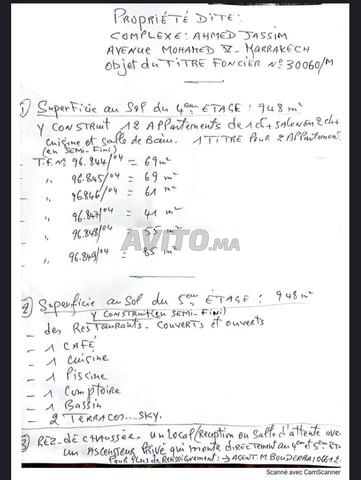 PROPRIÉTÉ DITE:
COMPLEXE: AHMED JASSIM
AVENUE MOHAMED V. MARRAKECH
Objet du TITRE FONCIER N° 30060/M
1) SuperFicie au Sol du 4ème ETAGE: 948 m²
Y CONSTRUIT 12 APPartements de 1ch+SALON ET 2ch+
Cuisine et salle de Bain. 1 TITRE POUR 2 APPartement.
(en SEMI-Fini)
T.F. N° 96.844/04 = 69 m²
" 96.845/04 = 69 m²
" 96.846/04 = 61 m²
" 96.847/04 = 41 m²
" 96.848/04 = 55 m²
" 96.849/04 = 85 m²
AVITO.MA
2) Superficie au Sol du 5ème ÉTAGE: 948 m²
Y CONSTRUIT (en SEMI-Fini)
- des Restaurants. couverts et ouverts
- 1 CAFÉ
- 1 Cuisine
- 1 Piscine
- 1 Comptoire
- 1 Bassin
- 2 TERRACOS...SKY.
3) REZ-DE CHAUSSÉE. un local/Reception ou Salle d'attente avec
un Ascenseur Privé qui monte directement au 4ème et 5ème ET.
Pour Plus de Renseignement: → AGENT. M. BOUDERBA
Scanné avec CamScanner